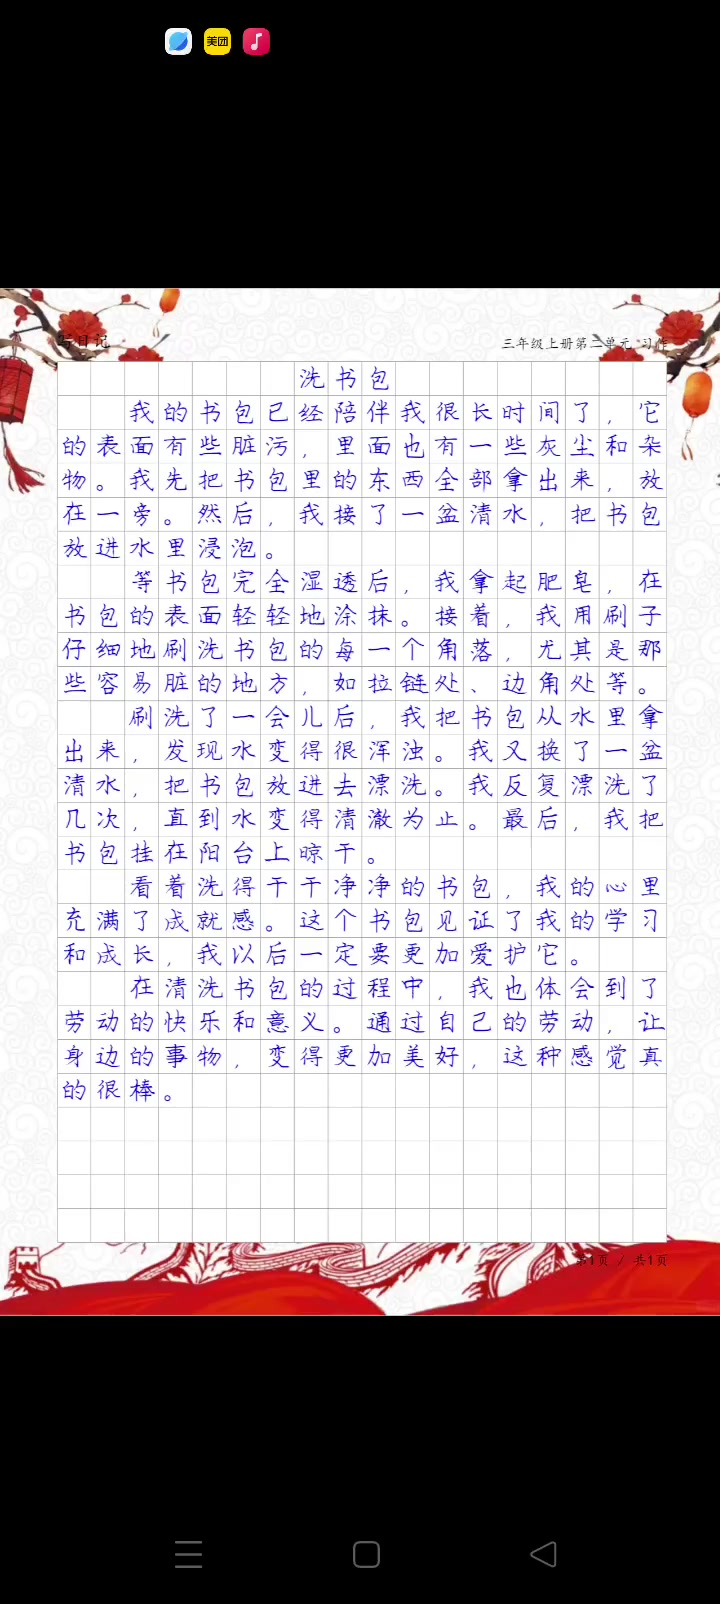 美团
写日记
三年级上册第二单元 习作
洗书包
我的书包已经陪伴我很长时间了，它
的表面有些脏污，里面也有一些灰尘和杂
物。我先把书包里的东西全部拿出来，放
在一旁。然后，我接了一盆清水，把书包
放进水里浸泡。
等书包完全湿透后，我拿起肥皂，在
书包的表面轻轻地涂抹。接着，我用刷子
仔细地刷洗书包的每一个角落，尤其是那
些容易脏的地方，如拉链处、边角处等。
刷洗了一会儿后，我把书包从水里拿
出来，发现水变得很浑浊。我又换了一盆
清水，把书包放进去漂洗。我反复漂洗了
几次，直到水变得清澈为止。最后，我把
书包挂在阳台上晾干。
看着洗得干干净净的书包，我的心里
充满了成就感。这个书包见证了我的学习
和成长，我以后一定要更加爱护它。
在清洗书包的过程中，我也体会到了
劳动的快乐和意义。通过自己的劳动，让
身边的事物，变得更加美好，这种感觉真
的很棒。
第1页 / 共1页